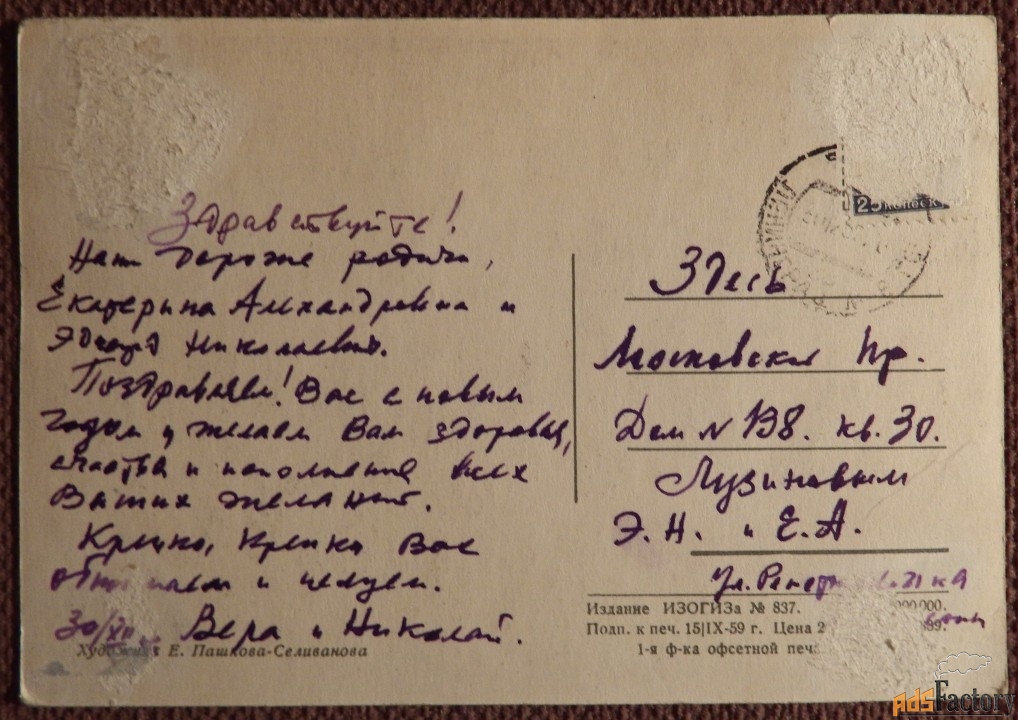 Здравствуйте!
Наши дорогие родичи,
Екатерина Александровна и
Эдуард Николаевич.
Поздравляем! Вас с новым
годом и желаем Вам здоровья,
счастья и исполнения всех
Ваших желаний.
Крепко, Крепко Вас
обнимаем и целуем.
30/XII. Вера и Николай.
Художник Е. Пашкова-Селиванова
25 КОПЕЕК
ЛЕНИНГРАД
Здесь
Московский пр.
Дом № 198. кв. 30.
Лузиновым
Э. Н. и Е. А.
ул.
Издание ИЗОГИЗа № 837. 000.000.
Подп. к печ. 15|IX-59 г. Цена 2
1-я ф-ка офсетной печ
AdsFactory